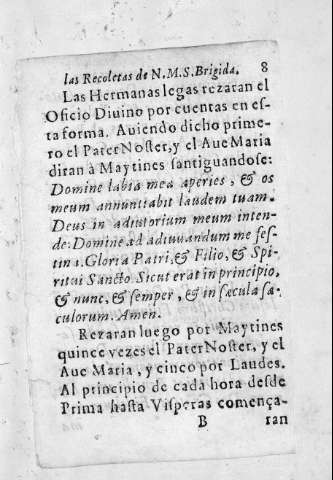 las Recoletas de N.M.S.Brigida. 8
Las Hermanas legas rezaran el
Oficio Diuino por cuentas en es-
ta forma. Auiendo dicho prime-
ro el Pater Noster, y el Aue Maria
diran à Maytines santiguandose:
Domine labia mea aperies, & os
meum annuntiabit laudem tuam.
Deus in adiutorium meum inten-
de: Domine ad adiuuandum me fes-
tina. Gloria Patri, & Filio, & Spi-
ritui Sancto. Sicut erat in principio,
& nunc, & semper, & in sæcula sæ-
culorum. Amen.
Rezaran luego por Maytines
quince vezes el Pater Noster, y el
Aue Maria, y cinco por Laudes.
Al principio de cada hora desde
Prima hasta Visperas comença-
B ran